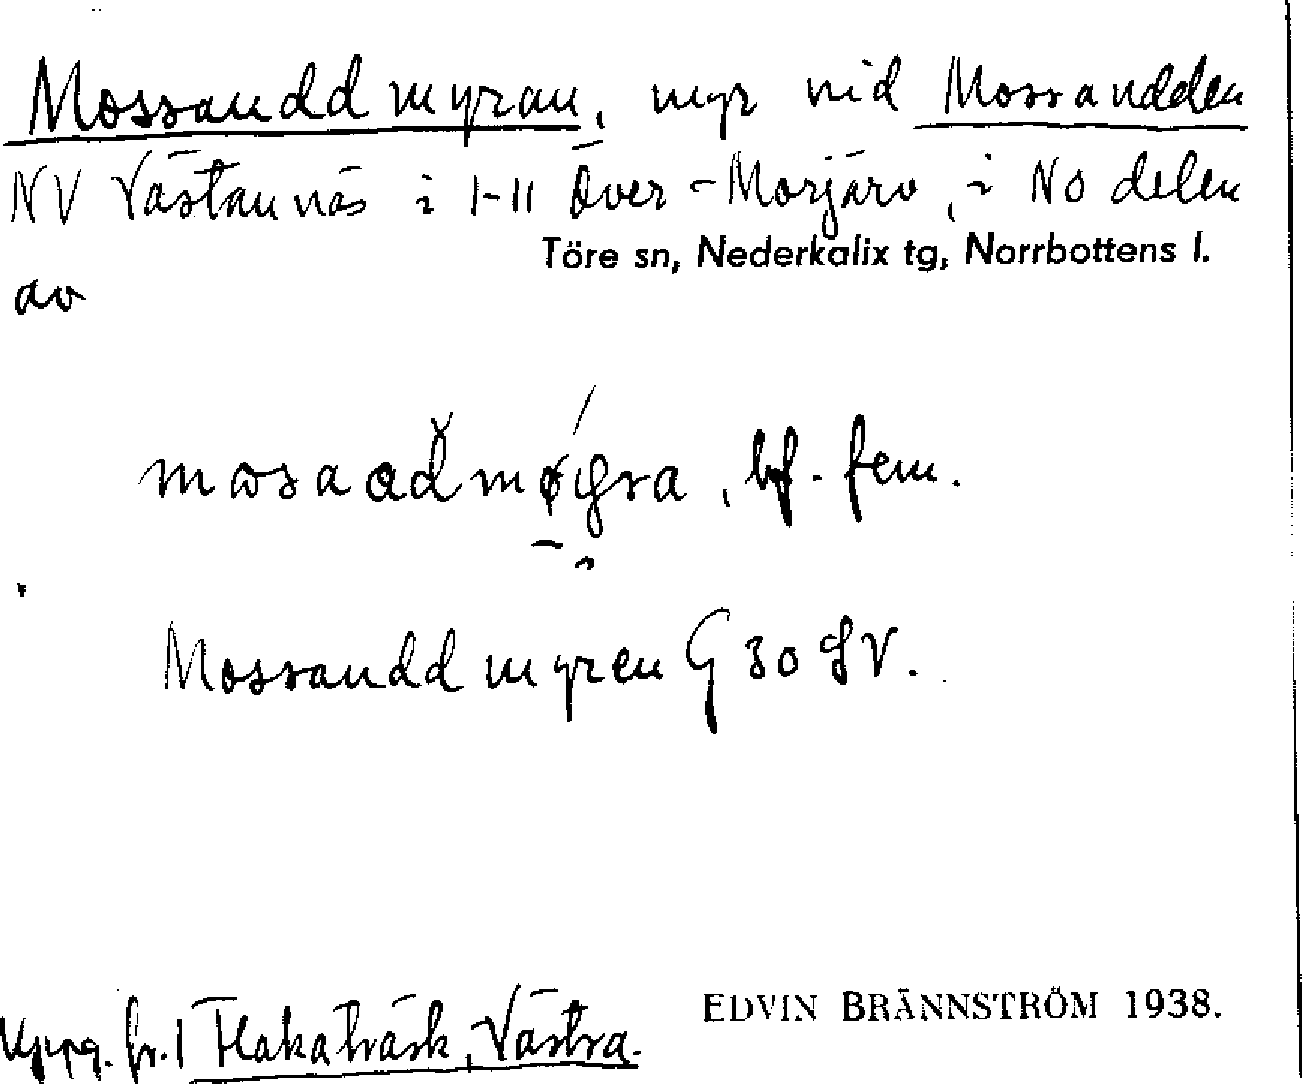 Mossauddmyran, myr vid Mossaudden
NV Västannäs i 1-11 Över-Morjärv, i NO delen
Töre sn, Nederkalix tg, Norrbottens l.
av
bf. fem.
Mossauddmyren G 30 SV.
Uppg. fr. 1 Flakaträsk, Västra.
EDVIN BRÄNNSTRÖM 1938.